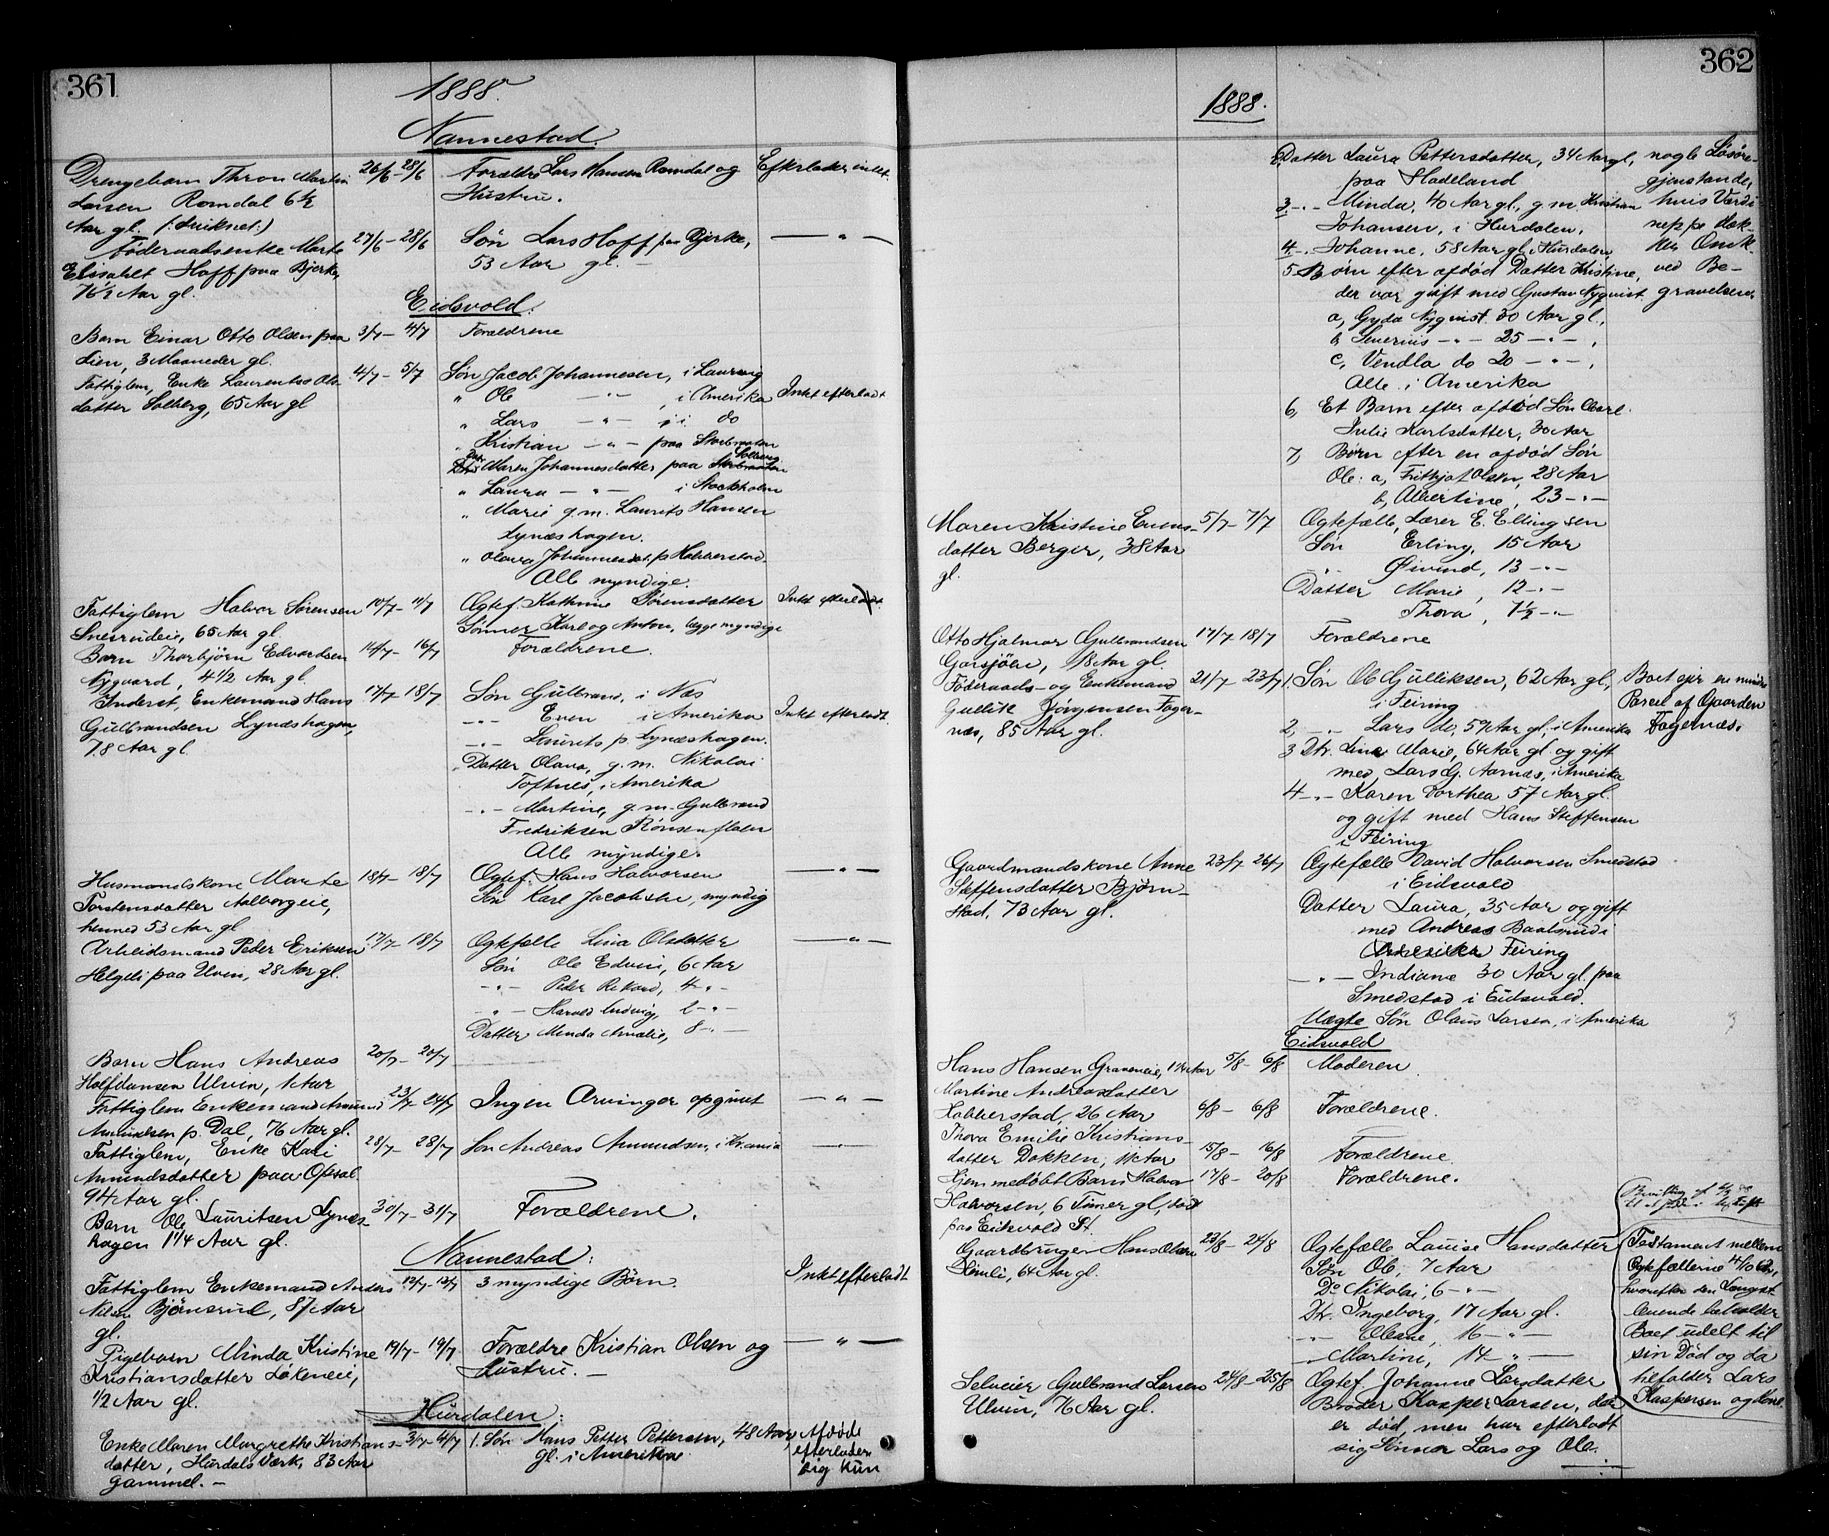 361
1888.
Nannestad.
Drengebarn Thron Martin 26/6 - 28/6 Forældre Lars Hansen Romdal og Efterlader intet.
Larsen Romdal 6 1/2 Hustru.
Aar gl.
Föderaadsenke Marte 27/6 - 28/6 Søn Lars Hoff paa Bjerke, — " —
Elisabet Hoff paa Bjerke, 53 Aar gl. —
76 1/2 Aar gl.
Eidsvold.
Barn Einar Otto Olsen paa 3/7 - 4/7 Forældrene
Lien, 3 Maaneder gl.
Fattiglem, Enke Laurentse Ols- 4/7 - 5/7 Søn Jacob Johannesen, i
datter Solberg, 65 Aar gl " Ole — " — , i Amerika Intet efterladt
" Lars — " — i do
" Kristian — " — paa
Maren Johannesdatter paa
" Laura — " — i Stockholm
" Marie g.m. Laurits Hansen
Lynæshagen.
" Olava Johannesdat. p. Habberstad.
Alle myndige.
Fattiglem Halvor Sørensen 10/7 - 11/7 Ægtef. Kathrine Sørensdatter Intet efterladt
65 Aar gl. Sønner Karl og Anton, begge myndige
Barn Thorbjørn Edvardsen 14/7 - 16/7 Forældrene.
Nygaard, 4 1/2 Aar gl.
Inderst, Enkemand Hans 17/7 - 18/7 Søn Gulbrand, i Næs
Gulbrandsen Lynæshagen, — " — Even i Amerika Intet efterladt.
78 Aar gl. — " — Laurits p. Lynæshagen.
Datter Olava, g.m. Nikolai
Toftnes, i Amerika
— " — Martine, g.m. Gulbrand
Fredriksen
Alle myndige.
Husmandskone Marte 18/7 - 18/7 Ægtef. Hans Halvorsen — " —
Torstensdatter Aalborgeie, Søn Karl Jacobsen, myndig
53 Aar gl
Arbeidsmand Peder Eriksen 17/7 - 18/7 Ægtefælle Lina Olsdatter — " —
Helgeli paa Ulven, 28 Aar gl. Søn Ole Edvin, 6 Aar
— " — Peder Rikard, 4 - " -
— " — Harald Ludvig, 2 - " -
Datter Minda Amalie, 8 - " —
Barn Hans Andreas 20/7 - 20/7
Halfdansen Ulvin, 1 Aar
Fattiglem Enkemand Amund 23/7 - 24/7 Ingen Arvinger opgivet — " —
Amundsen p. Dal, 76 Aar gl.
Fattiglem, Enke Kari 28/7 - 28/7 Søn Andreas Amundsen, i Kr.ania — " —
Amundsdatter paa Opsal
94 Aar gl.
Barn Ole Lauritsen Lynæs- 30/7 - 31/7 Forældrene.
hagen 1 1/4 Aar gl.
Nannestad:
Fattiglem Enkemand Anders 12/7 - 13/7 3 myndige Børn. Intet efterladt
Nilsen Bjørnsrud, 87 Aar
gl.
Pigebarn Minda Kristine 19/7 - 19/7 Forældre Kristian Olsen og — " —
Kristiansdatter Løkeneie, Hustru. —
1/2 Aar gl.
Hurdalen:
Enke Maren Margrethe Kristians- 3/7 - 4/7 1. Søn Hans Petter Pettersen, 48 Aar Afdöde
datter, Hurdals Værk, 83 Aar gl. i Amerika efterlader
gammel. — sig kun
362
1888.
2 Datter Laura Pettersdatter, 34 Aar gl, nogle Løsøre-
paa Hadeland gjenstande,
3 - " - Minda, 40 Aar gl., g.m. Kristian hvis Værdi
Johansen, i Hurdalen, neppe dæk-
4. - " - Johanne, 58 Aar gl i Hurdalen, ker Omk.
5 Børn efter afdöd Datter Kristine, ved Be-
der var gift med Gustav Nyqvist gravelsen
a, Gyda Nyqvist 30 Aar gl.,
b, Severius - " - 25 - " - ,
c, Vendla do 20 - " - ,
Alle i Amerika
6, Et Barn efter afdöd Søn Carl.
Julie Karlsdatter, 30 Aar
7, Børn efter en afdöd Søn
Ole: a, Frithjof Olsen, 28 Aar
b, Albertine, 23 - " -
Maren Kristine Evens- 5/7 - 7/7 Ægtefælle, Lærer E. Ellingsen
datter Berger, 38 Aar Søn Erling, 15 Aar
gl. Øivind, 13 - " -
Datter Marie, 12 - " -
Thora, 1 1/2 - " -
Otto Hjalmar Gulbrandsen 17/7 18/7 Forældrene
Garsjöen, 18 Aar gl.
Föderaads- og Enkemand 21/7 - 23/7 1. Søn Ole Gulliksen, 62 Aar gl, Boet ejer en mindre
Gullik Jörgensen Fager- i Feiring Parcel af Gaarden
næs, 85 Aar gl. 2, - " - Lars do, 59 Aar gl. i Amerika Fagernæs.
3 Dtr. Line Marie, 64 Aar gl. og gift
med Lars G. Aarnæs, i Amerika
4 - " - Karen Dorthea 57 Aar gl.
og gift med Hans Steffensen
i Feiring
Gaardmandskone Anne 23/7 26/7 Ægtefælle David Halvorsen Smedstad
Steffensdatter Björn- i Eidsvold
stad, 73 Aar gl. Datter Laura, 35 Aar og gift
med Andreas i
Feiring
— " — Indiane 30 Aar gl. paa
Smedstad i Eidsvold.
Uægte Søn Olaus Larsen, i Amerika
Eidsvold
Hans Hansen 5/8 - 6/8 Moderen
Martine Andreasdatter
Habberstad, 26 Aar 6/8 - 6/8 Forældrene.
Thora Emilie Kristians-
datter Dokken, Aar 15/8 - 16/8 Forældrene.
Hjemmedöbt Barn Halvor 17/8 - 20/8 Forældrene.
Halvorsen, 6 Timer gl, död
paa Eidsvold St.
Gaardbruger Hans Olsen 23/8 - 24/8 Ægtefælle Louise Hansdatter Testament mellem
64 Aar gl. Søn Ole, 7 Aar Ægtefællerne
Do Nikolai, 6 - " - hvorefter den Længst-
Dtr. Ingeborg, 17 Aar gl. levende beholder
- " - Oleane, 16 - " — Boet udelt til
- " - Martine, 14 - " — sin Död og da
Selveier Gulbrand Larsen 24/8 - 25/8 Ægtef. Johanne Larsdatter beholder Lars
Ulven, 76 Aar gl. Broder Kasper Larsen, der Kaspersen og Kone
er död, men har efterladt
sig Sønner Lars og Ole.